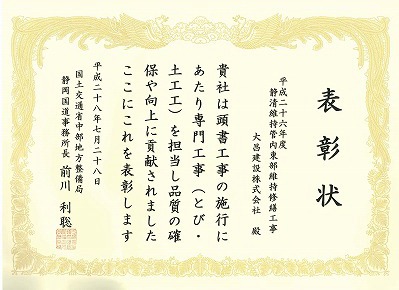 表彰状
平成二十六年度
静清維持管内東部維持修繕工事
大昌建設株式会社 殿
貴社は頭書工事の施行に
あたり専門工事（とび・
土工工）を担当し品質の確
保や向上に貢献されました
ここにこれを表彰します
平成二十八年七月二十八日
国土交通省中部地方整備局
静岡国道事務所長 前川 利聡